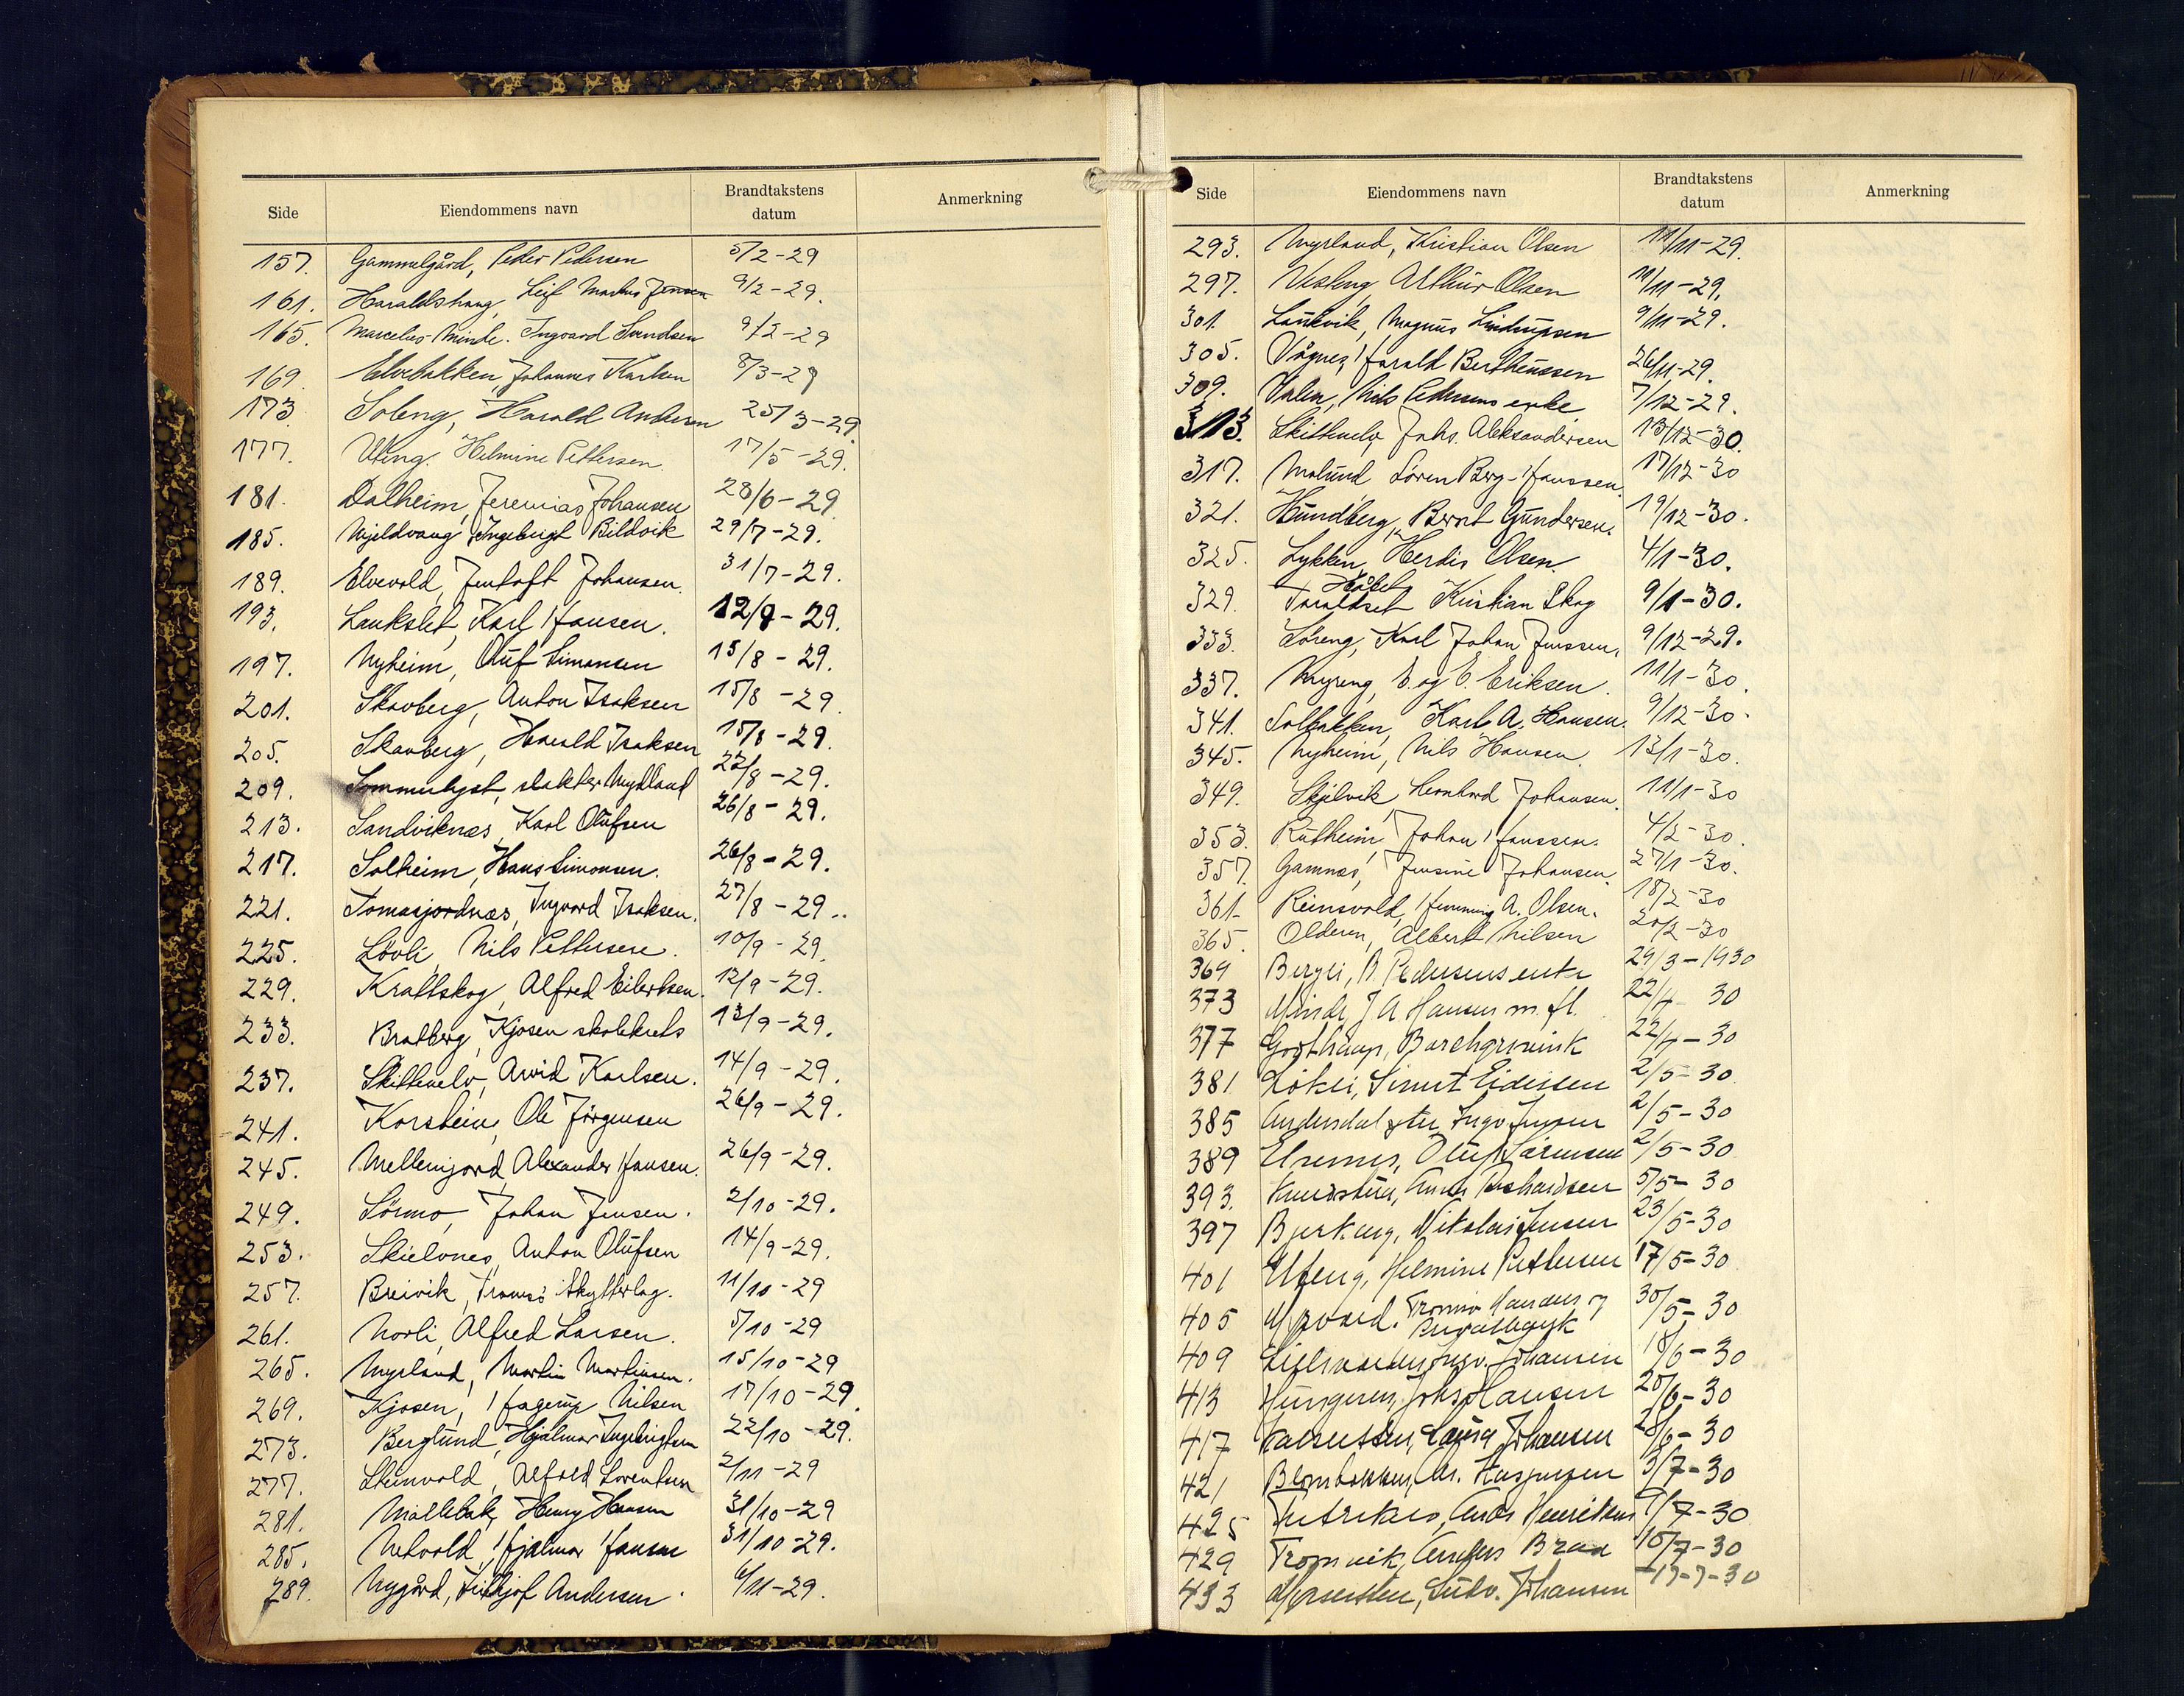 Side Eiendommens navn Brandtakstens datum Anmerkning
157. Gammelgård, Peder Pedersen 5/2-29
161. Haraldshaug, Leif Markus Jensen 9/2-29.
165. Marcelius-Minde. Ingvard Svendsen 9/2-29
169. Elvebakken, Johannes Karlsen 8/3-29
173. Soleng, Harald Andersen 25/3-29
177. Uteng. Helmine Pettersen. 17/5-29.
181. Dalheim, Jeremias Johansen 28/6-29
185. Mjeldvang Ingebrigt Bildvik 29/7-29.
189. Elvevold, Jentoft Johansen. 31/7-29.
193. Lankslet, Karl Hansen. 12/9-29.
197. Nyheim, Oluf Simonsen 15/8-29.
201. Skavberg, Anton Isaksen 15/8-29.
205. Skavberg, Harald Isaksen 15/8-29.
209. Sommerlyst, slakter Mydland 22/8-29.
213. Sandviknæs, Karl Olufsen 26/8-29.
217. Solheim, Hans Simonsen. 26/8-29.
221. Tomasjordnæs, Ingvard Isaksen. 27/8-29..
225. Lövli, Nils Pettersen. 10/9-29.
229. Krattskog, Alfred Eilertsen. 12/9-29.
233. Bratberg, Kjosen skolekrets 13/9-29.
237. Skittenelv, Arvid Karlsen. 14/9-29.
241. Korsheim, Ole Jörgensen 26/9-29.
245. Mellemjord, Alexander Hansen. 26/9-29.
249. Sörmo, Johan Jensen. 2/10-29.
253. Skielvnes, Anton Olufsen 14/9-29.
257. Breivik, Tromsö Skytterlag. 11/10-29
261. Norli, Alfred Larsen. 5/10-29
265. Myrland, Martin Martinsen. 15/10-29
269. Kjosen, Hagerup Nilsen 17/10-29.
273. Berglund, Hjalmar Ingebrigtsen 22/10-29.
277. Steinvold, Alfred Lorentsen 2/11-29
281. Mollebak, Henry Hansen 31/10-29
285. Netvold, Hjalmar Hansen 31/10-29.
289. Nygård, Fridtjof Andersen. 6/11-29.
Side Eiendommens navn Brandtakstens datum Anmerkning
293. Myrland, Kristian Olsen 11/11-29.
297. Vesteng, Arthur Olsen 11/11-29.
301. Laukvik, Magnus Lindrupsen 9/11-29.
305. Vågnes, Harald Bertheussen 26/11-29.
309. Valen, Nils Pedersens enke 7/12-29.
313. Skittenelv, Johs. Aleksandersen 13/12-30.
317. Molund Sören Berg-Hanssen. 17/12-30
321. Hundberg, Bernt Gundersen. 19/12-30.
325. Lykken, Herdis Olsen. 4/1-30.
329. Taraldset Kristian Skog 9/1-30.
333. Söreng, Karl Johan Jenssen. 9/12-29.
337. Myreng, E. og E. Eriksen. 11/1-30.
341. Solbakken, Karl A. Hansen. 9/12-30.
345. Nyheim, Nils Hansen. 13/1-30.
349. Skjelvik Leonhard Johansen. 11/1-30
353. Rutheim, Johan Hanssen. 4/2-30.
357. Gamnes, Jensine Johansen. 27/1-30.
361- Reinsvold, Henning A. Olsen. 18/2-30
365. Olderen, Albert Nilsen 20/2-30
369 Bergli, B. Pedersens enke 29/3-1930
373 Minde, J A Hansen m. fl. 22/4 30
377 Godthaap, Borchgrevink 22/4-30
381 2/5-30
385 Andersdal 2/5-30
389 Oluf Sörensen 2/5-30
393. 5/5-30
397 Bjerkeng, Nikolai Jensen 23/5-30
401 Uteng, Helmine Pettersen 17/5-30
405 Tromsø Handels og 30/5-30
409 Ingv. Johansen 18/6-30
413 Hungeren, Johs Hansen 20/6-30
417 Laura Johansen 28/6-30
421 Blombakken, M. Kaspersen 3/7-30
425 Henriksen 7/7-30
429 Tromvik, 10/7-30
433 Ludv. Johansen 17-7-30